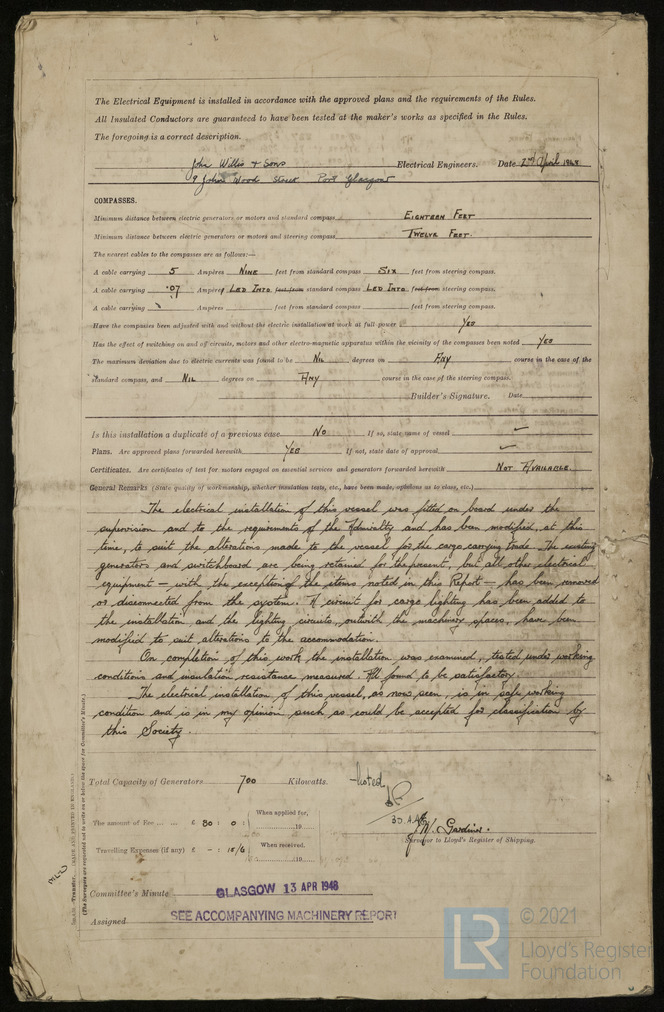 The Electrical Equipment is installed in accordance with the approved plans and the requirements of the Rules.
All Insulated Conductors are guaranteed to have been tested at the maker's works as specified in the Rules.
The foregoing is a correct description.
John Willis & Sons Electrical Engineers. Date 2nd April 1948
9 John Wood Street Port Glasgow
COMPASSES.
Minimum distance between electric generators or motors and standard compass EIGHTEEN FEET
Minimum distance between electric generators or motors and steering compass TWELVE FEET.
The nearest cables to the compasses are as follows:—
A cable carrying 5 Ampères NINE feet from standard compass SIX feet from steering compass.
A cable carrying .07 Ampères LED INTO feet from standard compass LED INTO feet from steering compass.
A cable carrying Ampères feet from standard compass feet from steering compass.
Have the compasses been adjusted with and without the electric installation at work at full power YES
Has the effect of switching on and off circuits, motors and other electro-magnetic apparatus within the vicinity of the compasses been noted YES
The maximum deviation due to electric currents was found to be NIL degrees on ANY course in the case of the
standard compass, and NIL degrees on ANY course in the case of the steering compass.
Builder's Signature. Date
Is this installation a duplicate of a previous case NO If so, state name of vessel ✓
Plans. Are approved plans forwarded herewith YES If not, state date of approval ✓
Certificates. Are certificates of test for motors engaged on essential services and generators forwarded herewith NOT AVAILABLE
General Remarks (State quality of workmanship, whether insulation tests, etc., have been made, opinions as to class, etc.)
The electrical installation of this vessel was fitted on board under the
supervision and to the requirements of the Admiralty and has been modified, at this
time, to suit the alterations made to the vessel for the cargo carrying trade. The existing
generators and switchboard are being retained for the present, but all other electrical
equipment — with the exception of the items noted in this Report — has been removed
or disconnected from the system. A circuit for cargo lighting has been added to
the installation and the lighting circuits, outwith the machinery spaces, have been
modified to suit alterations to the accommodation.
On completion of this work the installation was examined, tested under working
conditions and insulation resistance measured. All found to be satisfactory.
The electrical installation of this vessel, as now seen, is in safe working
condition and is in my opinion such as could be accepted for classification by
this Society.
Total Capacity of Generators 700 Kilowatts.
Noted
30.4.48
The amount of Fee £ 30 : 0 : When applied for, 19
J.W. Gardner.
Surveyor to Lloyd's Register of Shipping.
Travelling Expenses (if any) £ - : 15/6 : When received, 19
Committee's Minute GLASGOW 13 APR 1948
Assigned SEE ACCOMPANYING MACHINERY REPORT
(The Surveyors are requested not to write on or below the space for Committee's Minute.)
LR
© 2021
Lloyd's Register
Foundation